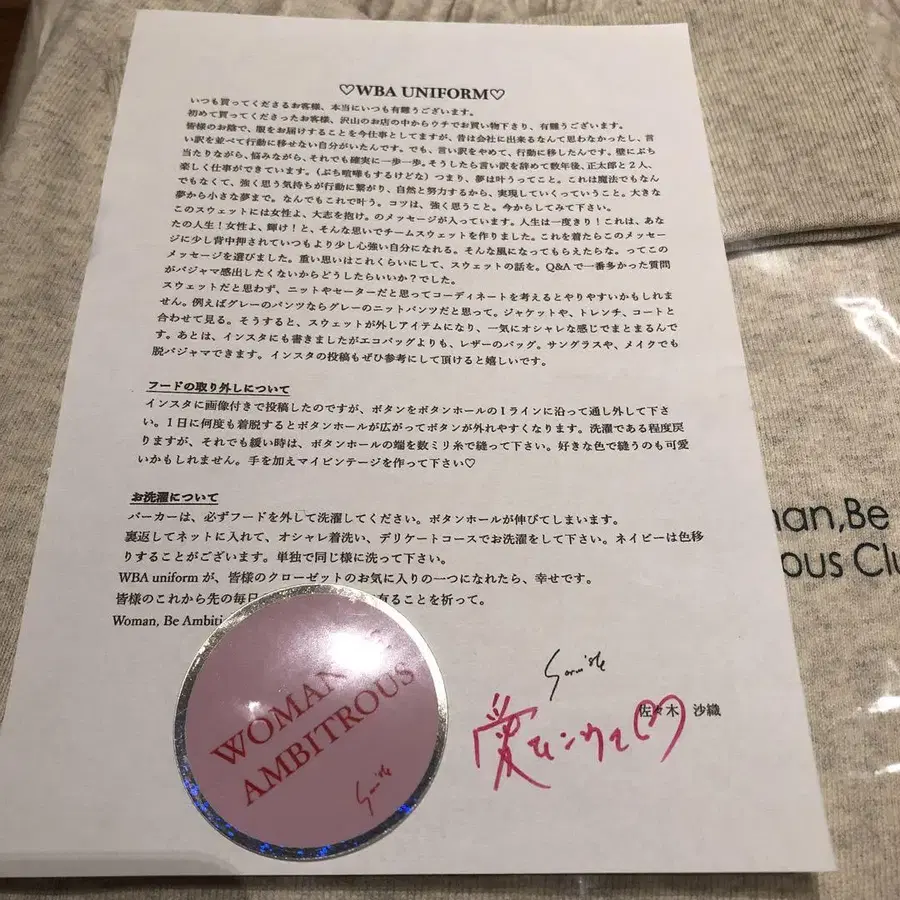 ♡WBA UNIFORM♡
いつも買ってくださるお客様、本当にいつも有難うございます。
初めて買ってくださったお客様、沢山のお店の中からウチでお買い物下さり、有難うございます。
皆様のお陰で、服をお届けすることを今仕事としてますが、昔は会社に出来るなんて思わなかったし、言
い訳を並べて行動に移せない自分がいたんです。でも、言い訳をやめて、行動に移したんです。壁にぶち
当たりながら、悩みながら、それでも確実に一歩一歩。そうしたら言い訳を辞めて数年後、正太郎と2人、
楽しく仕事ができています。(ぶち喧嘩もするけどな)つまり、夢は叶うってこと。これは魔法でもなん
でもなくて、強く思う気持ちが行動に繋がり、自然と努力するから、実現していくっていうこと。大きな
夢から小さな夢まで。なんでもこれで叶う。コツは、強く思うこと。今からしてみて下さい。
このスウェットには女性よ、大志を抱け。のメッセージが入っています。人生は一度きり!これは、あな
たの人生!女性よ、輝け!と、そんな思いでチームスウェットを作りました。これを着たらこのメッセー
ジに少し背中押されていつもより少し心強い自分になれる。そんな風になってもらえたらな。ってこの
メッセージを選びました。重い思いはこれくらいにして、スウェットの話を。Q&Aで一番多かった質問
がパジャマ感出したくないからどうしたらいいか?でした。
スウェットだと思わず、ニットやセーターだと思ってコーディネートを考えるとやりやすいかもしれま
せん。例えばグレーのパンツならグレーのニットパンツだと思って。ジャケットや、トレンチ、コートと
合わせて見る。そうすると、スウェットが外しアイテムになり、一気にオシャレな感じでまとまるんで
す。あとは、インスタにも書きましたがエコバッグよりも、レザーのバッグ。サングラスや、メイクでも
脱パジャマできます。インスタの投稿もぜひ参考にして頂けると嬉しいです。
フードの取り外しについて
インスタに画像付きで投稿したのですが、ボタンをボタンホールのIラインに沿って通し外して下さ
い。1日に何度も着脱するとボタンホールが広がってボタンが外れやすくなります。洗濯である程度戻
りますが、それでも緩い時は、ボタンホールの端を数ミリ糸で縫って下さい。好きな色で縫うのも可愛
いかもしれません。手を加えマイビンテージを作って下さい♡
お洗濯について
パーカーは、必ずフードを外して洗濯してください。ボタンホールが伸びてしまいます。
裏返してネットに入れて、オシャレ着洗い、デリケートコースでお洗濯をして下さい。ネイビーは色移
りすることがございます。単独で同じ様に洗って下さい。
WBA uniform が、皆様のクローゼットのお気に入りの一つになれたら、幸せです。
皆様のこれから先の毎日 有ることを祈って。
Woman, Be Ambiti
佐々木 沙織
愛
WOMAN
AMBITROUS
an,Be
ous Clu